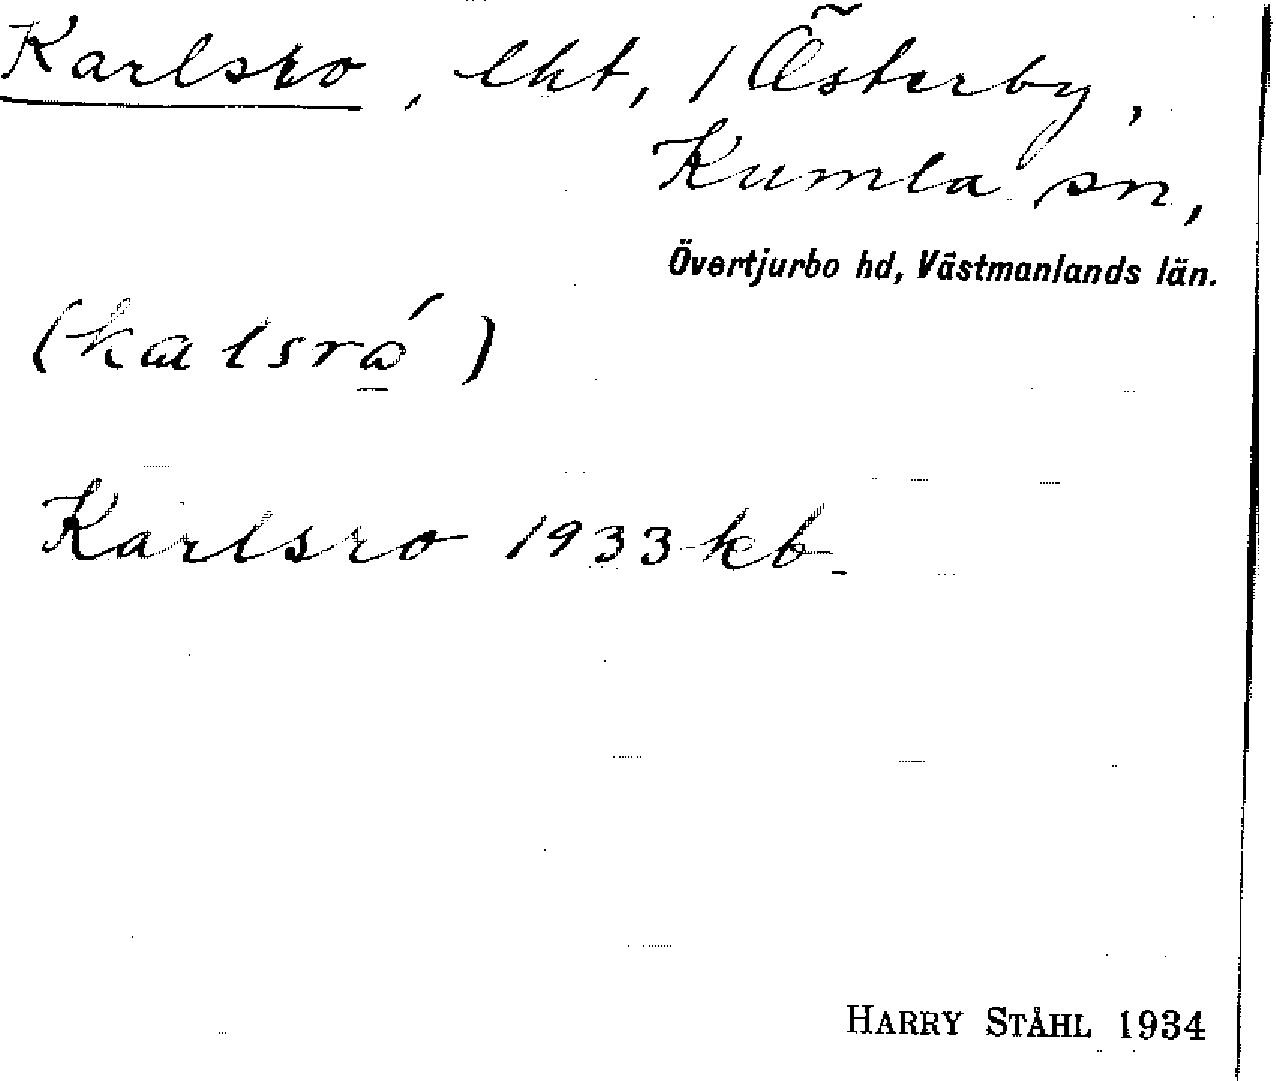 Karlsro, lht, 1 Österby,
Kumla sn,
Övertjurbo hd, Västmanlands län.
(kalsró)
Karlsro 1933 kb.
HARRY STÅHL 1934